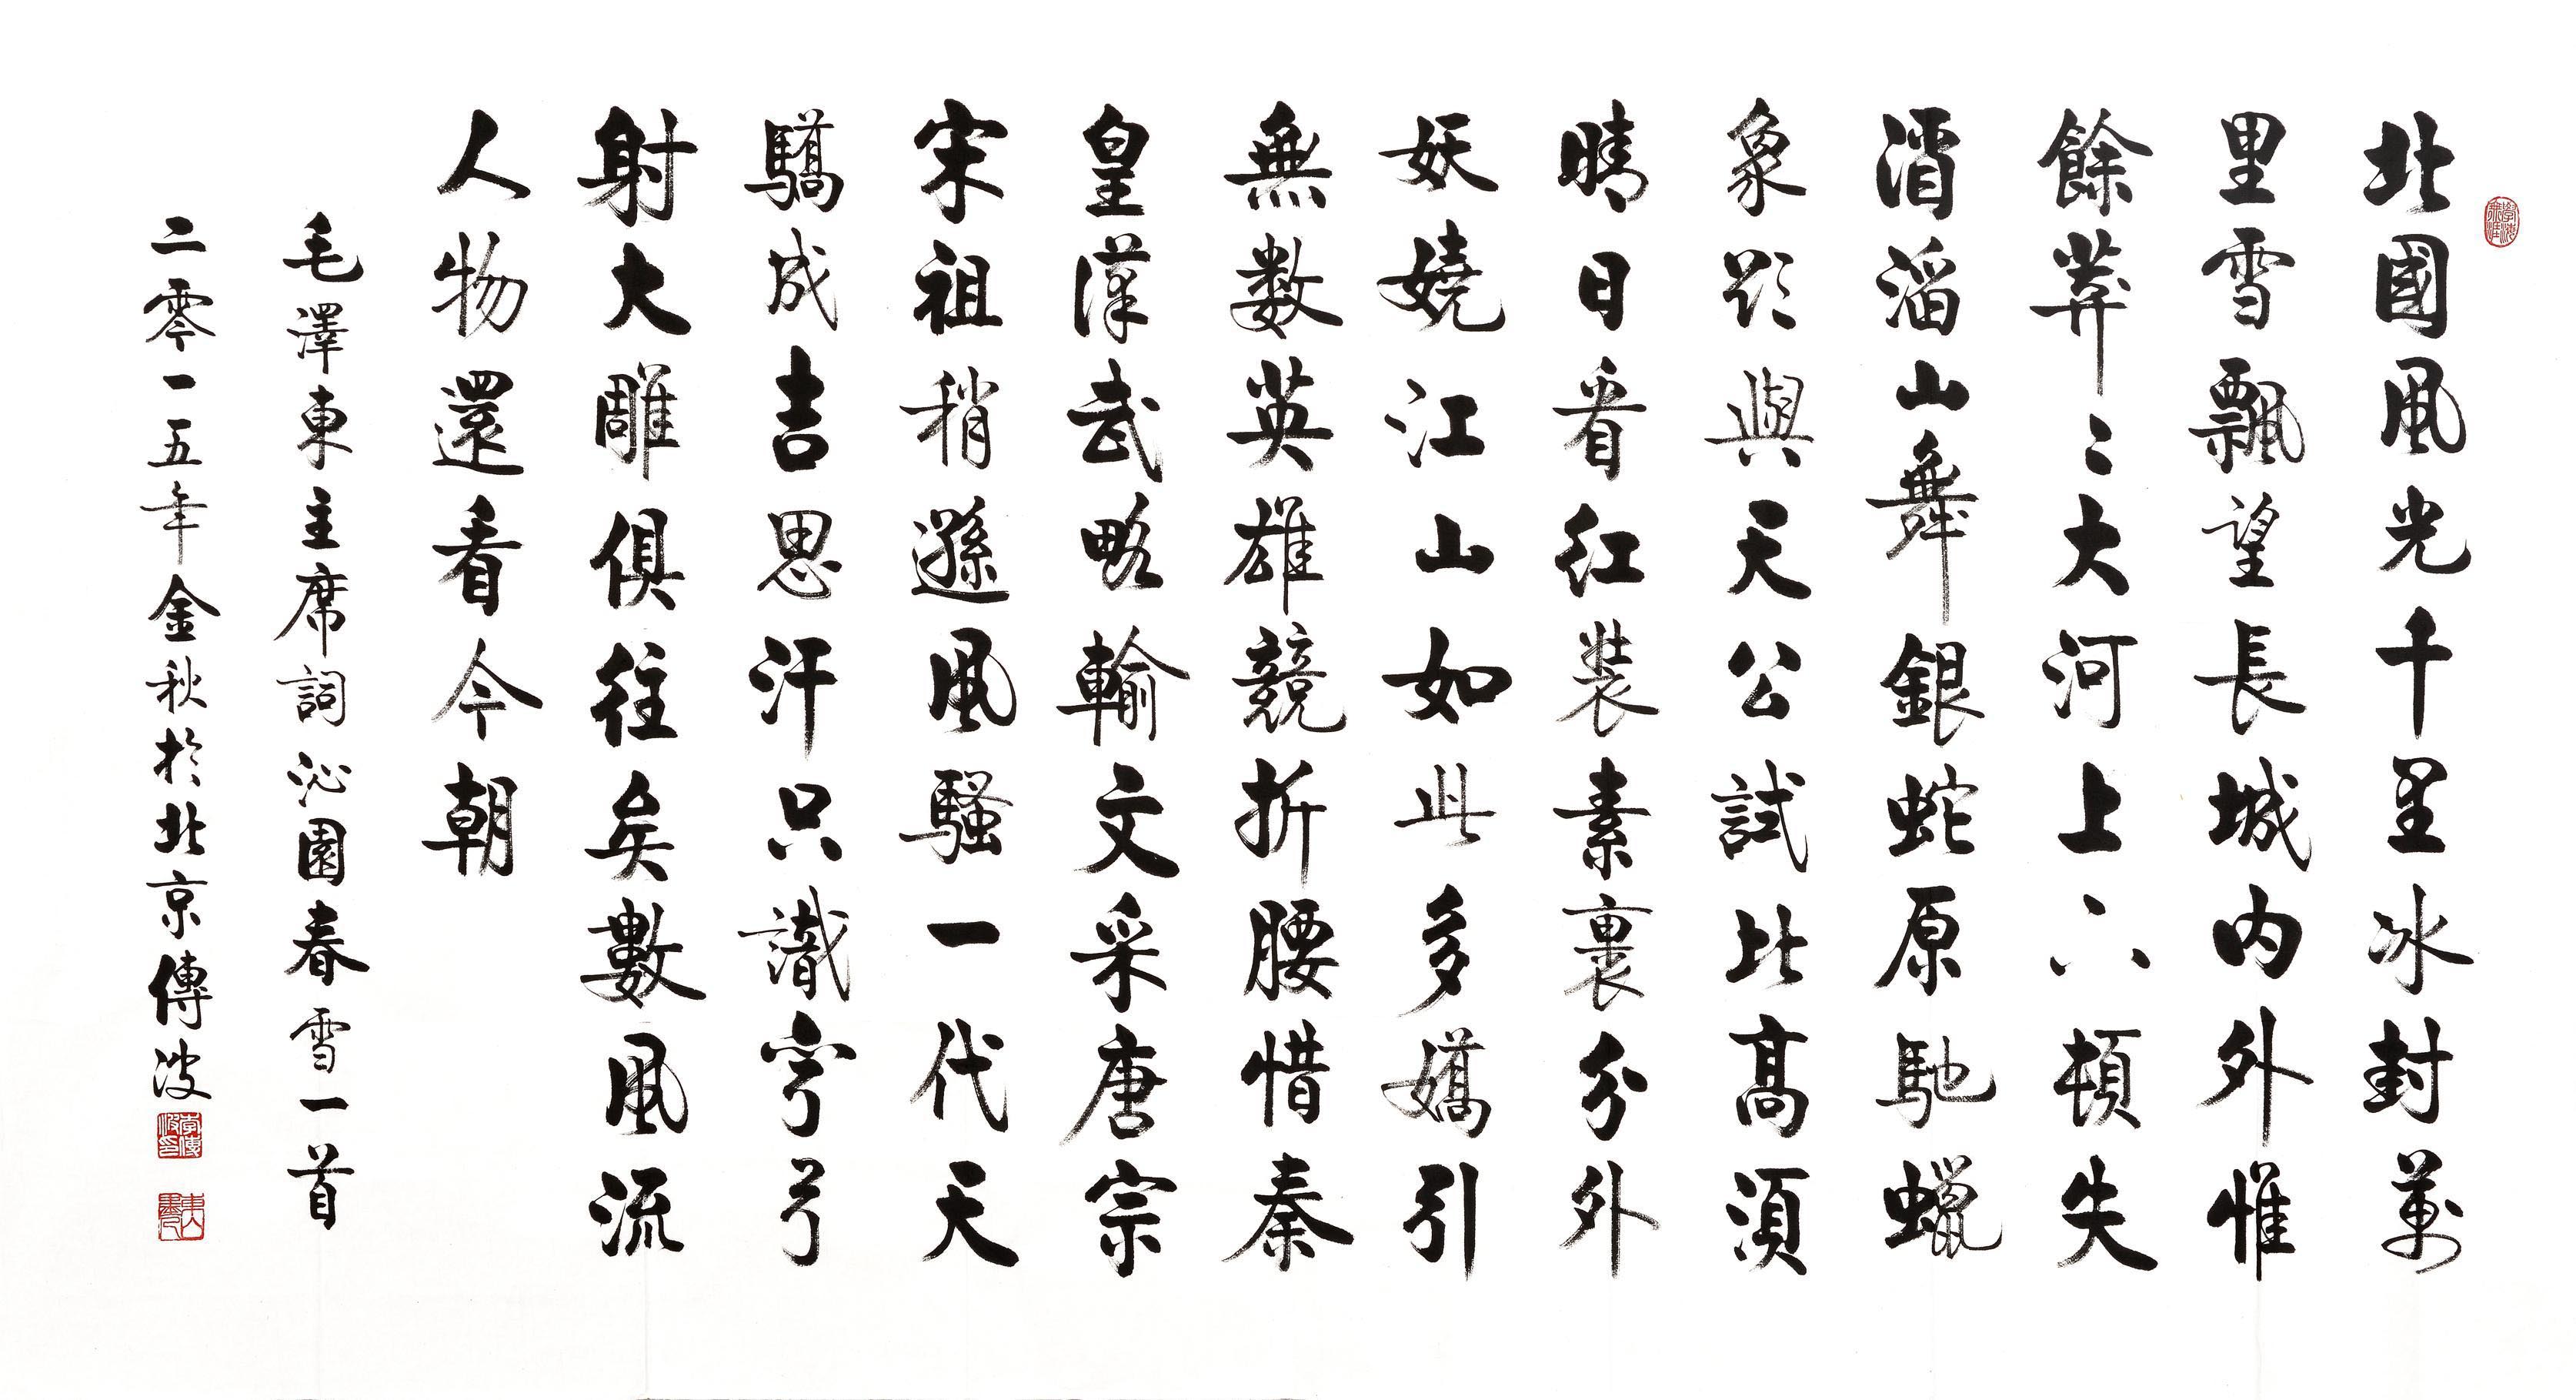 學海無涯
北國風光千里冰封萬
里雪飄望長城内外惟
餘莽〻大河上下頓失
滔滔山舞銀蛇原馳蠟
象欲與天公試比高須
晴日看紅裝素裹分外
妖嬈江山如此多嬌引
無数英雄競折腰惜秦
皇漢武略輸文采唐宗
宋祖稍遜風騷一代天
驕成吉思汗只識彎弓
射大雕俱往矣數風流
人物還看今朝
毛澤東主席詞沁園春雪一首
二零一五年金秋於北京傳波
李傳波印